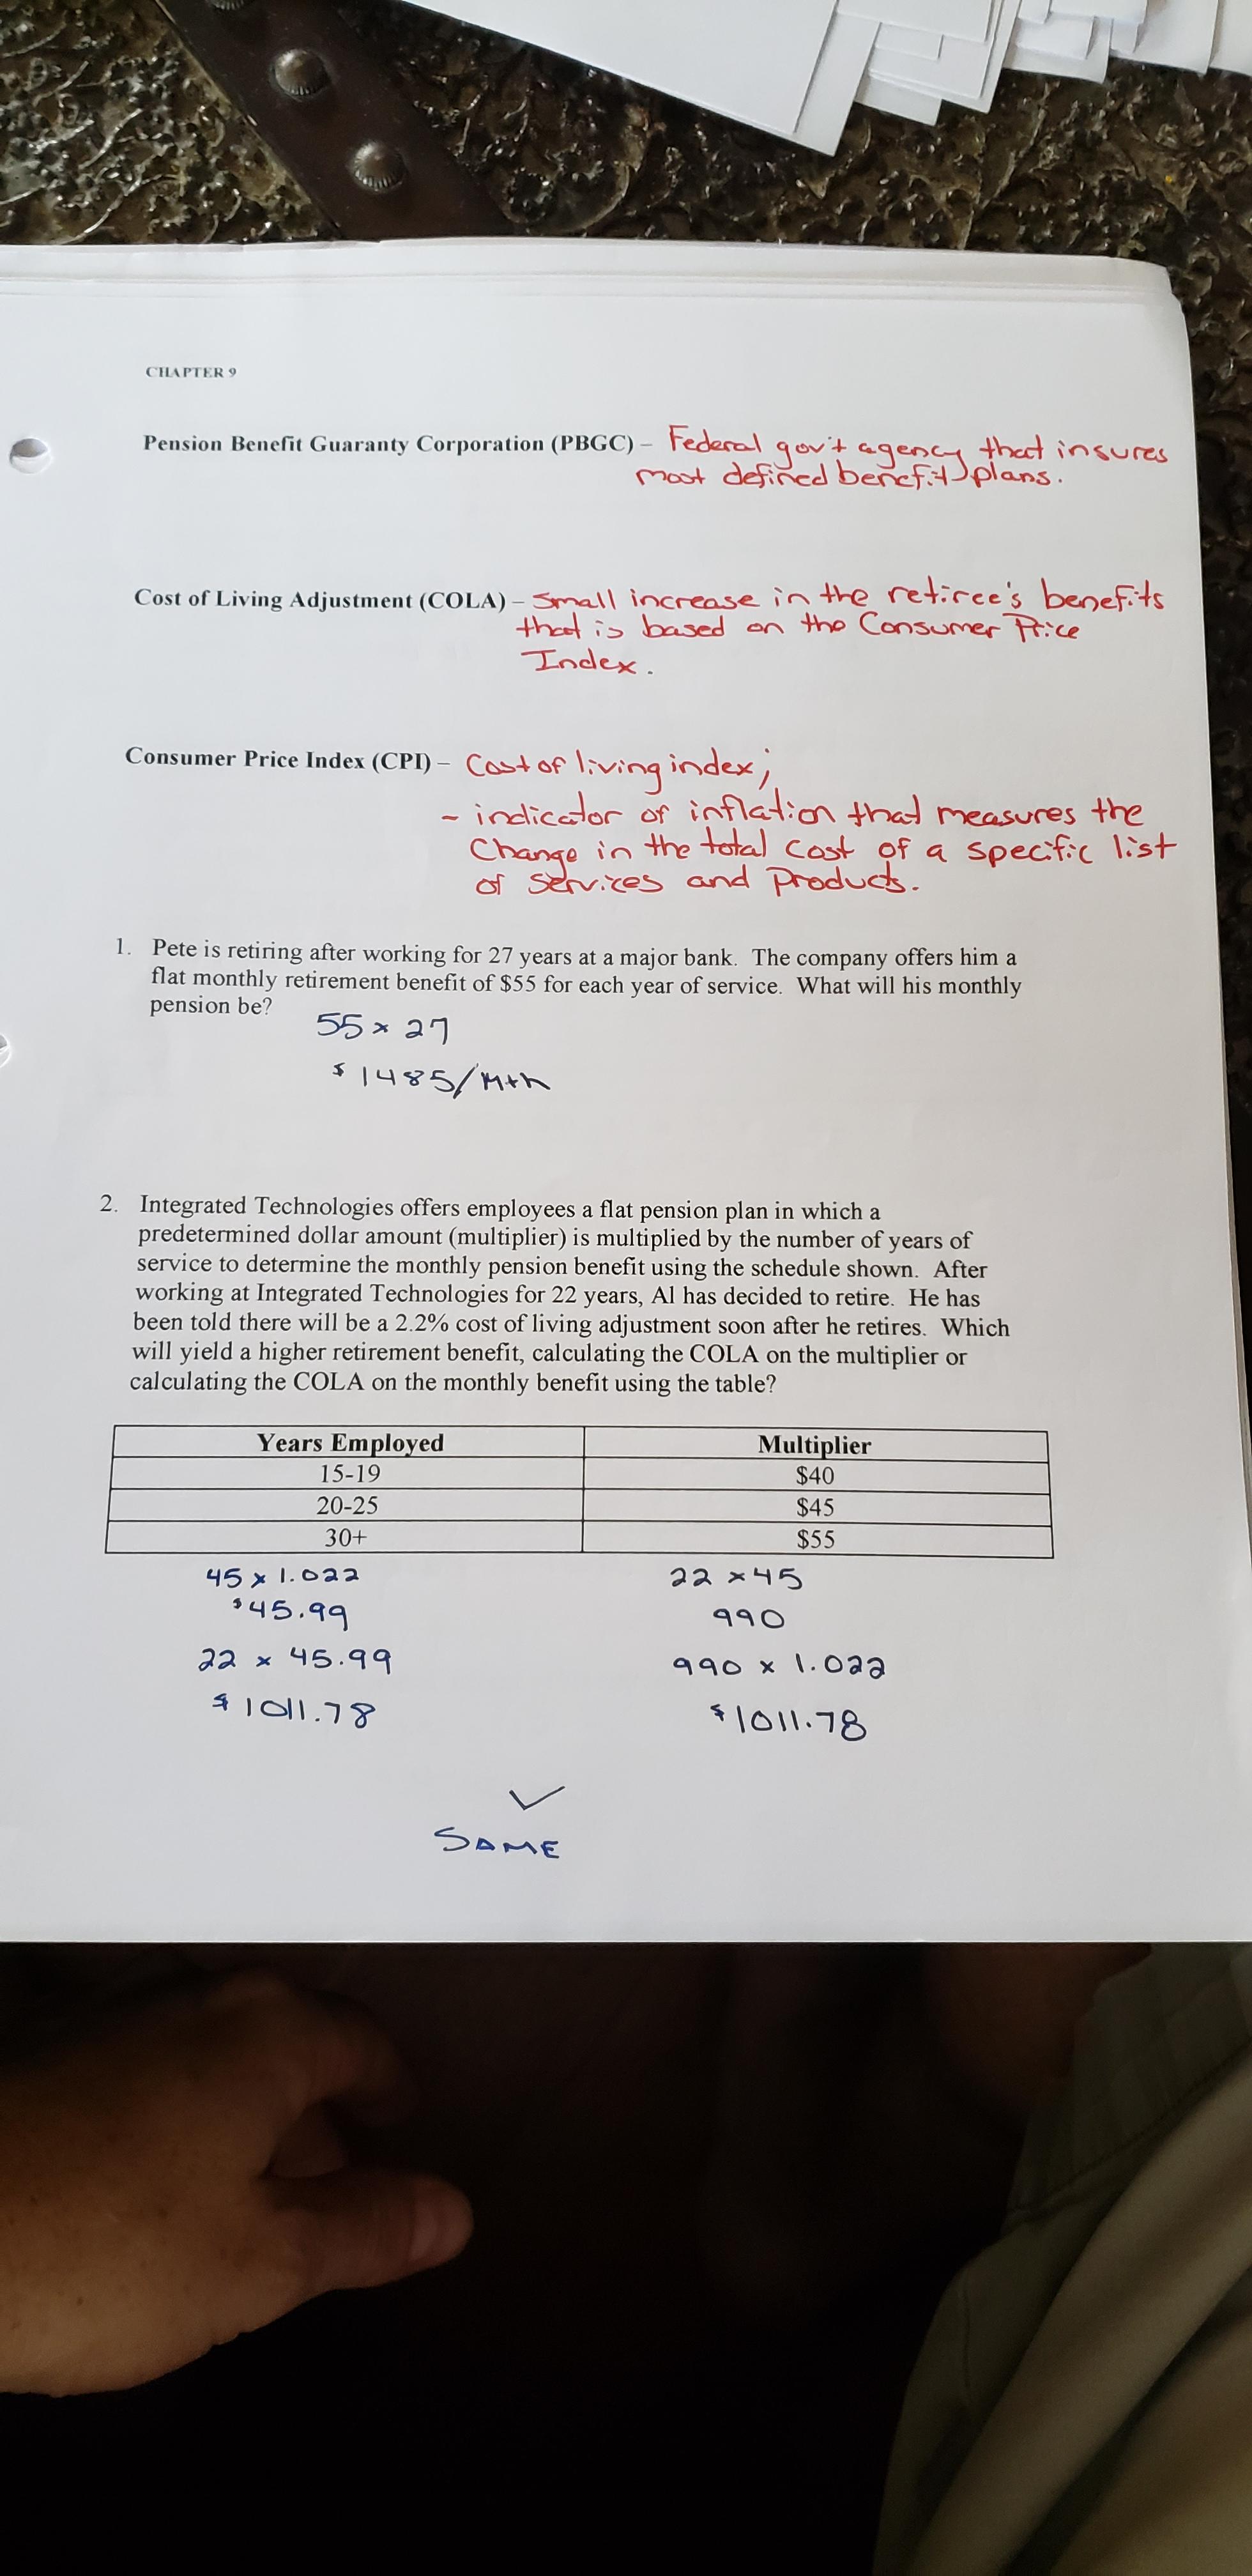 CHAPTER 9
Pension Benefit Guaranty Corporation (PBGC) – Federal gov't agency that insures
most defined benefit plans.
Cost of Living Adjustment (COLA) – Small increase in the retiree's benefits
that is based on the Consumer Price
Index.
Consumer Price Index (CPI) – Cost of living index;
- indicator of inflation that measures the
Change in the total cost of a specific list
of services and products.
1. Pete is retiring after working for 27 years at a major bank. The company offers him a
flat monthly retirement benefit of $55 for each year of service. What will his monthly
pension be?
55 × 27
$1485/Mth
2. Integrated Technologies offers employees a flat pension plan in which a
predetermined dollar amount (multiplier) is multiplied by the number of years of
service to determine the monthly pension benefit using the schedule shown. After
working at Integrated Technologies for 22 years, Al has decided to retire. He has
been told there will be a 2.2% cost of living adjustment soon after he retires. Which
will yield a higher retirement benefit, calculating the COLA on the multiplier or
calculating the COLA on the monthly benefit using the table?
Years Employed Multiplier
15-19 $40
20-25 $45
30+ $55
45 × 1.022 22 × 45
$45.99 990
22 × 45.99 990 × 1.022
$1011.78 $1011.78
✓
SAME